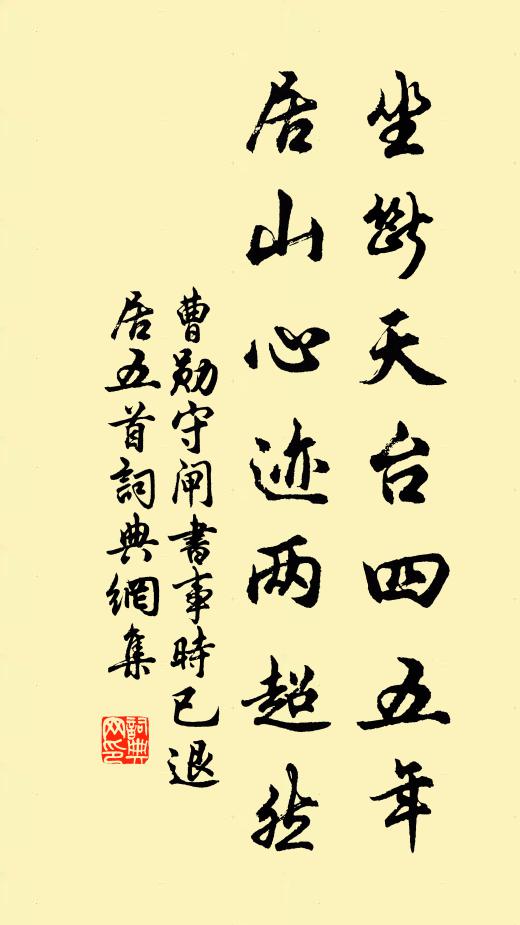 坐斷天台四五年
居山心迹两超然
曹勋守闸書事時已退
居五首詞典網集
詞典
网印